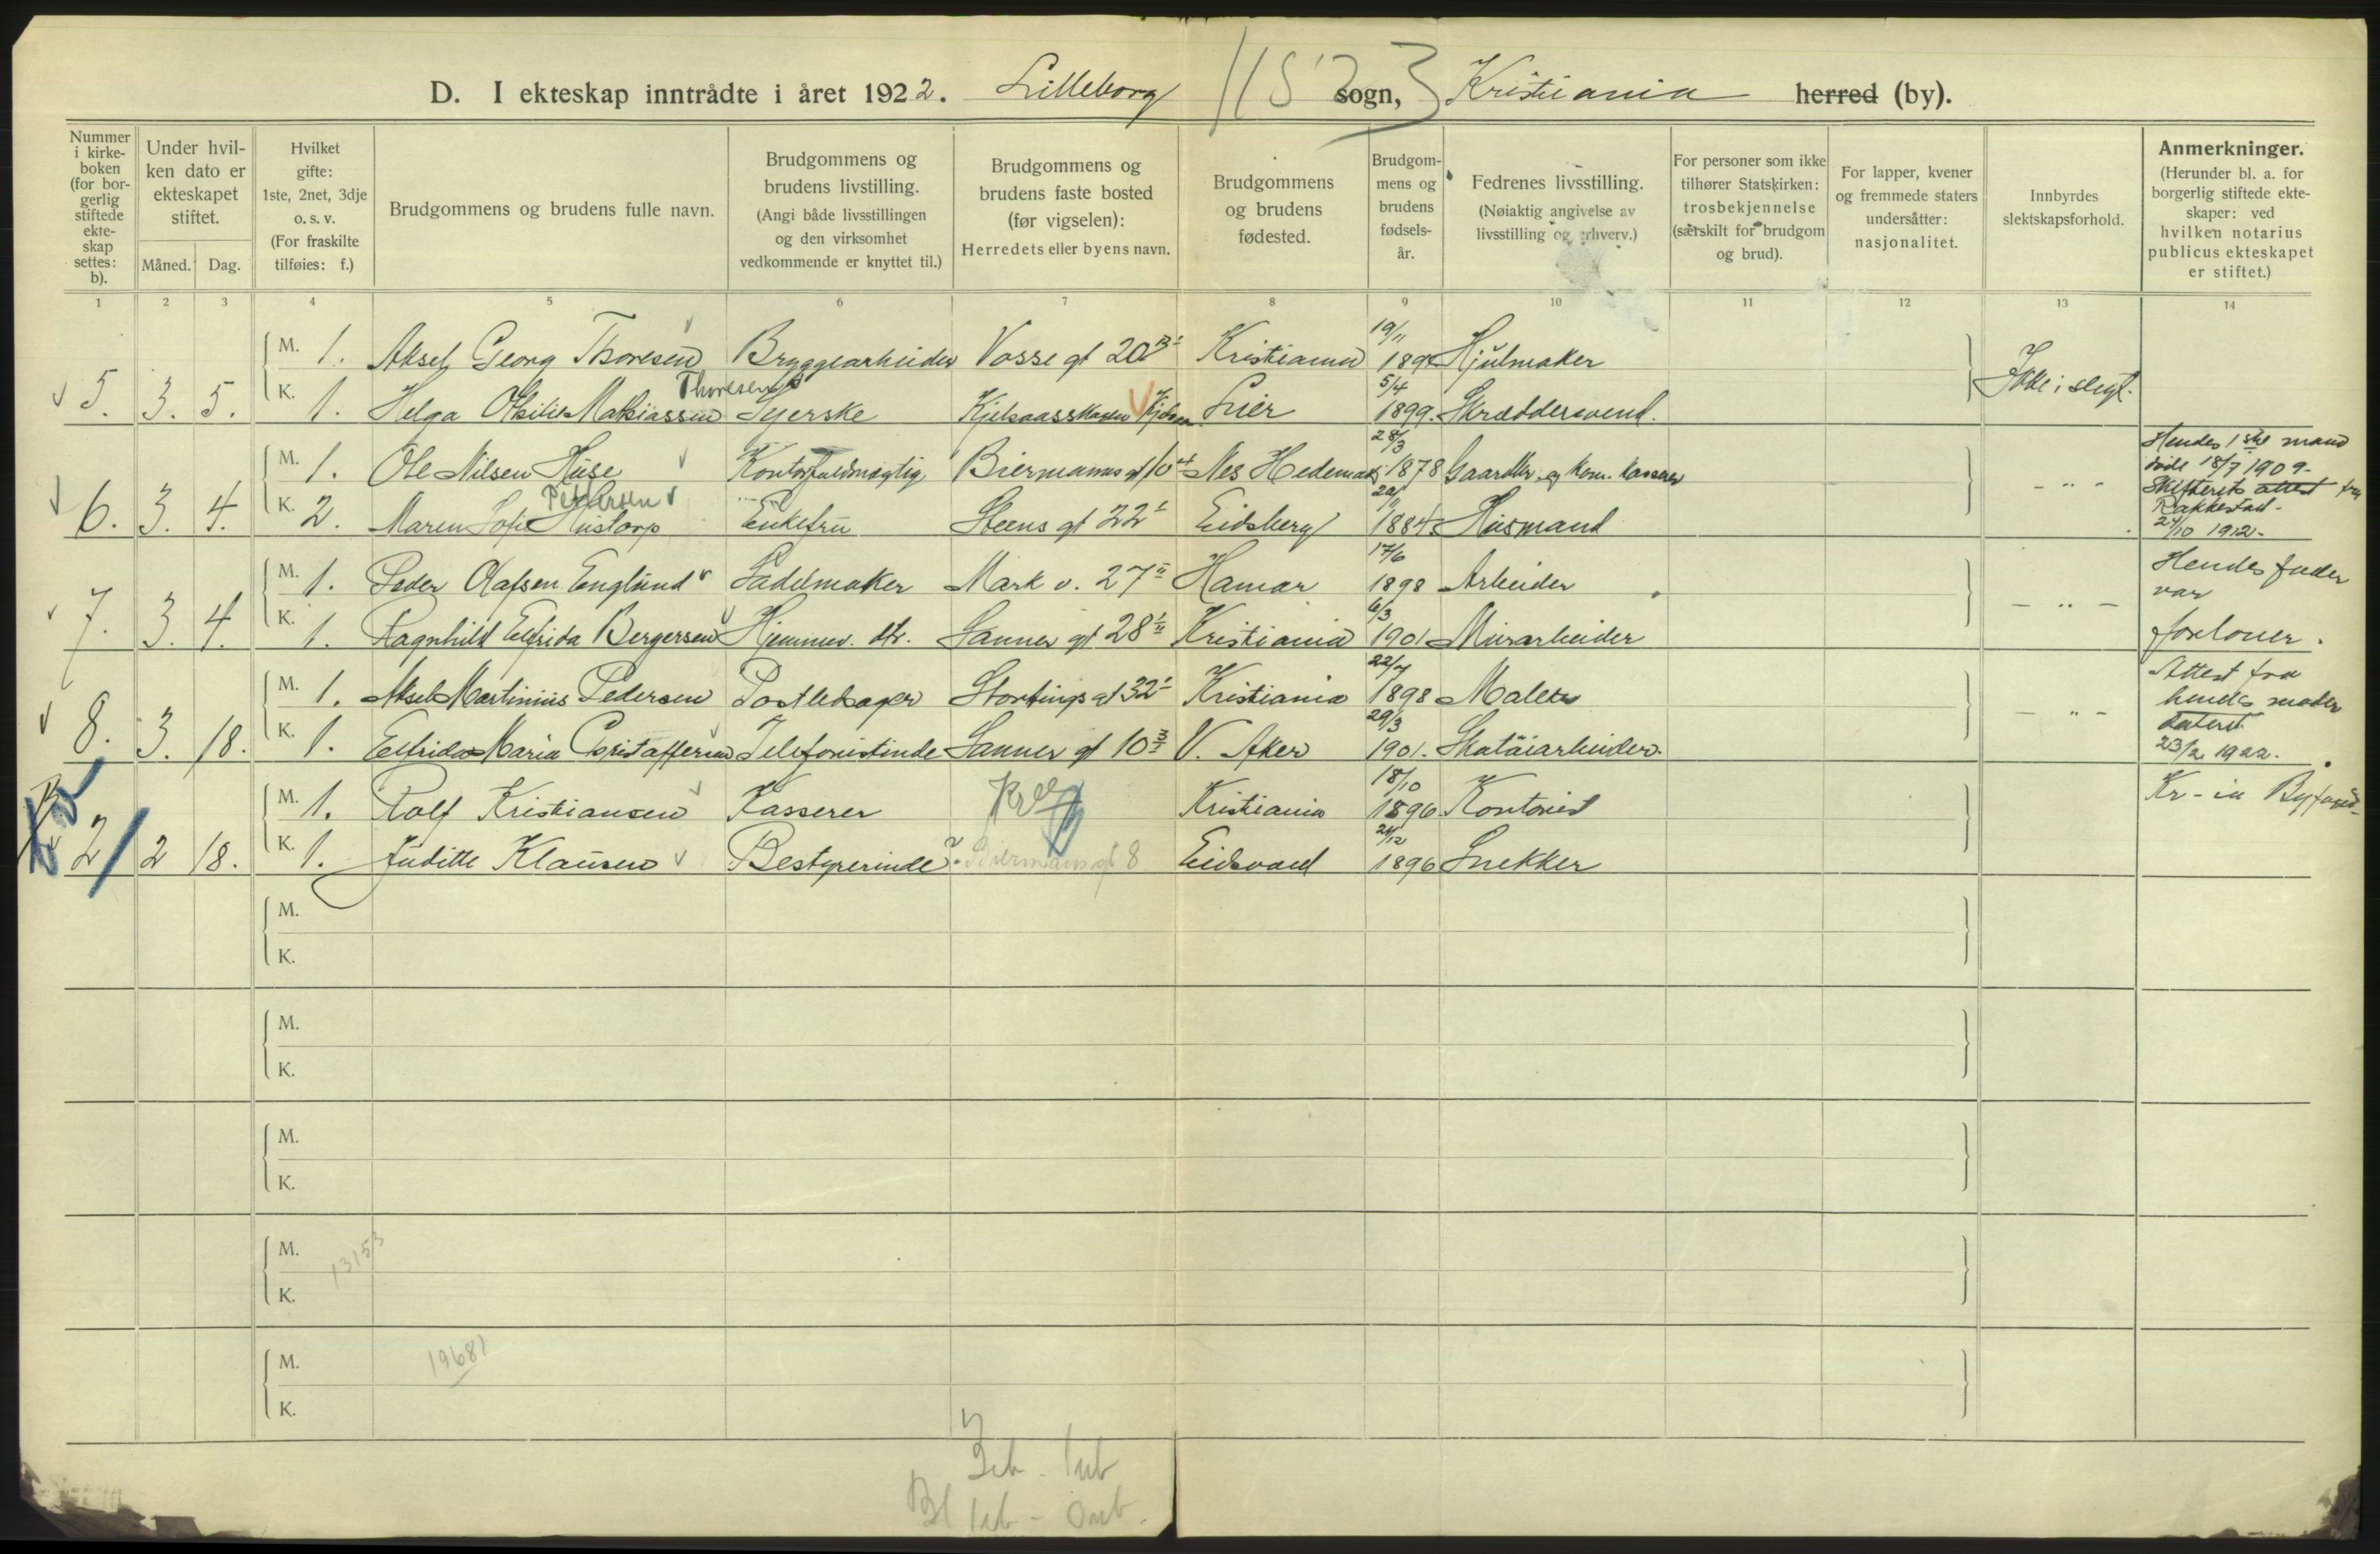 D. I ekteskap inntrådte i året 1922. Lilleborg sogn, Kristiania herred (by).
1153
Nummer i kirke-boken (for bor-gerlig stiftede ekte-skap settes: b).
Under hvil-ken dato er ekteskapet stiftet.
Måned. Dag.
Hvilket gifte: 1ste, 2net, 3dje o. s. v. (For fraskilte tilføies: f.)
Brudgommens og brudens fulle navn.
Brudgommens og brudens livstilling. (Angi både livsstillingen og den virksomhet vedkommende er knyttet til.)
Brudgommens og brudens faste bosted (før vigselen): Herredets eller byens navn.
Brudgommens og brudens fødested.
Brudgom-mens og brudens fødsels-år.
Fedrenes livsstilling. (Nøiaktig angivelse av livsstilling og erhverv.)
For personer som ikke tilhører Statskirken: trosbekjennelse (særskilt for brudgom og brud).
For lapper, kvener og fremmede staters undersåtter: nasjonalitet.
Innbyrdes slektskapsforhold.
Anmerkninger. (Herunder bl. a. for borgerlig stiftede ekte-skaper: ved hvilken notarius publicus ekteskapet er stiftet.)
1 2 3 4 5 6 7 8 9 10 11 12 13 14
M. 1. Aksel Georg Thoresen Bryggearbeider Vosse gt 20 Kristiania 19/11 189 Hjulmaker
Thoresen
5. 3. 5. K. 1. Helga Otilie Mathiassen Syerske Kjelsaasskogen Lier 5/4 1899. Skræddersvend. Ikke i slegt.
M. 1. Ole Nilsen Huse Kontorfuldmægtig Biermanns gt 10 Nes Hedemark 28/3 1878 Gaardbr. og kom. kasserer
Pettersen
6. 3. 4. K. 2. Maren Sofie Hustorp Enkefru Steens gt 22 Eidsberg 1884 Husmand - " -
Hendes 1ste mand
døde 18/7 1909-
Skifterets attest fra
Rakkestad-
24/10 1912-
M. 1. Peder Olafsen Englund Sadelmaker Mark v. 27 II Hamar 17/6 1898 Arbeider
7. 3. 4. K. 1. Ragnhild Elfrida Bergersen Hjemmev. dtr. Sanner gt 28 Kristiania 6/3 1901 Murarbeider - " -
Hendes fader
var
forlover.
M. 1. Aksel Martinius Pedersen Postledsager Stortings gt 32 Kristiania 22/7 1898 Maler
8. 3. 18. K. 1. Elfrida Maria Christoffersen Telefonistinde Sanner gt 10 V. Aker 29/3 1901. Skotøiarbeider. - " -
Attest fra
hendes moder
dateret
23/2 1922.
M. 1. Rolf Kristiansen Kasserer Kristiania 18/10 1896 Kontorist
2 2 18. K. 1. Juditte Klausen Bestyrerinde Biermans gt 8 Eidsvold 21/12 1896 Snekker
Kr-ia Byfoged
M.
K.
M.
K.
M.
K.
M.
K.
13153
M.
K.
19681